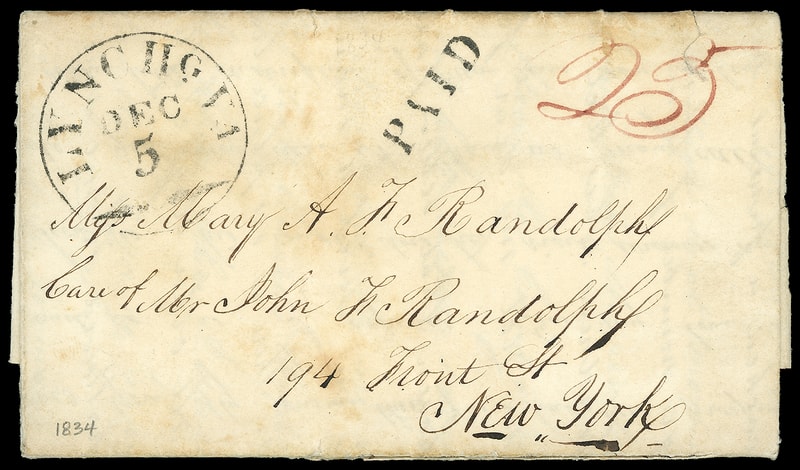 LYNCHG VA
DEC
5
PAID
25
Miss Mary A. F. Randolph
Care of Mr John F Randolph
194 Front St
New York
1834